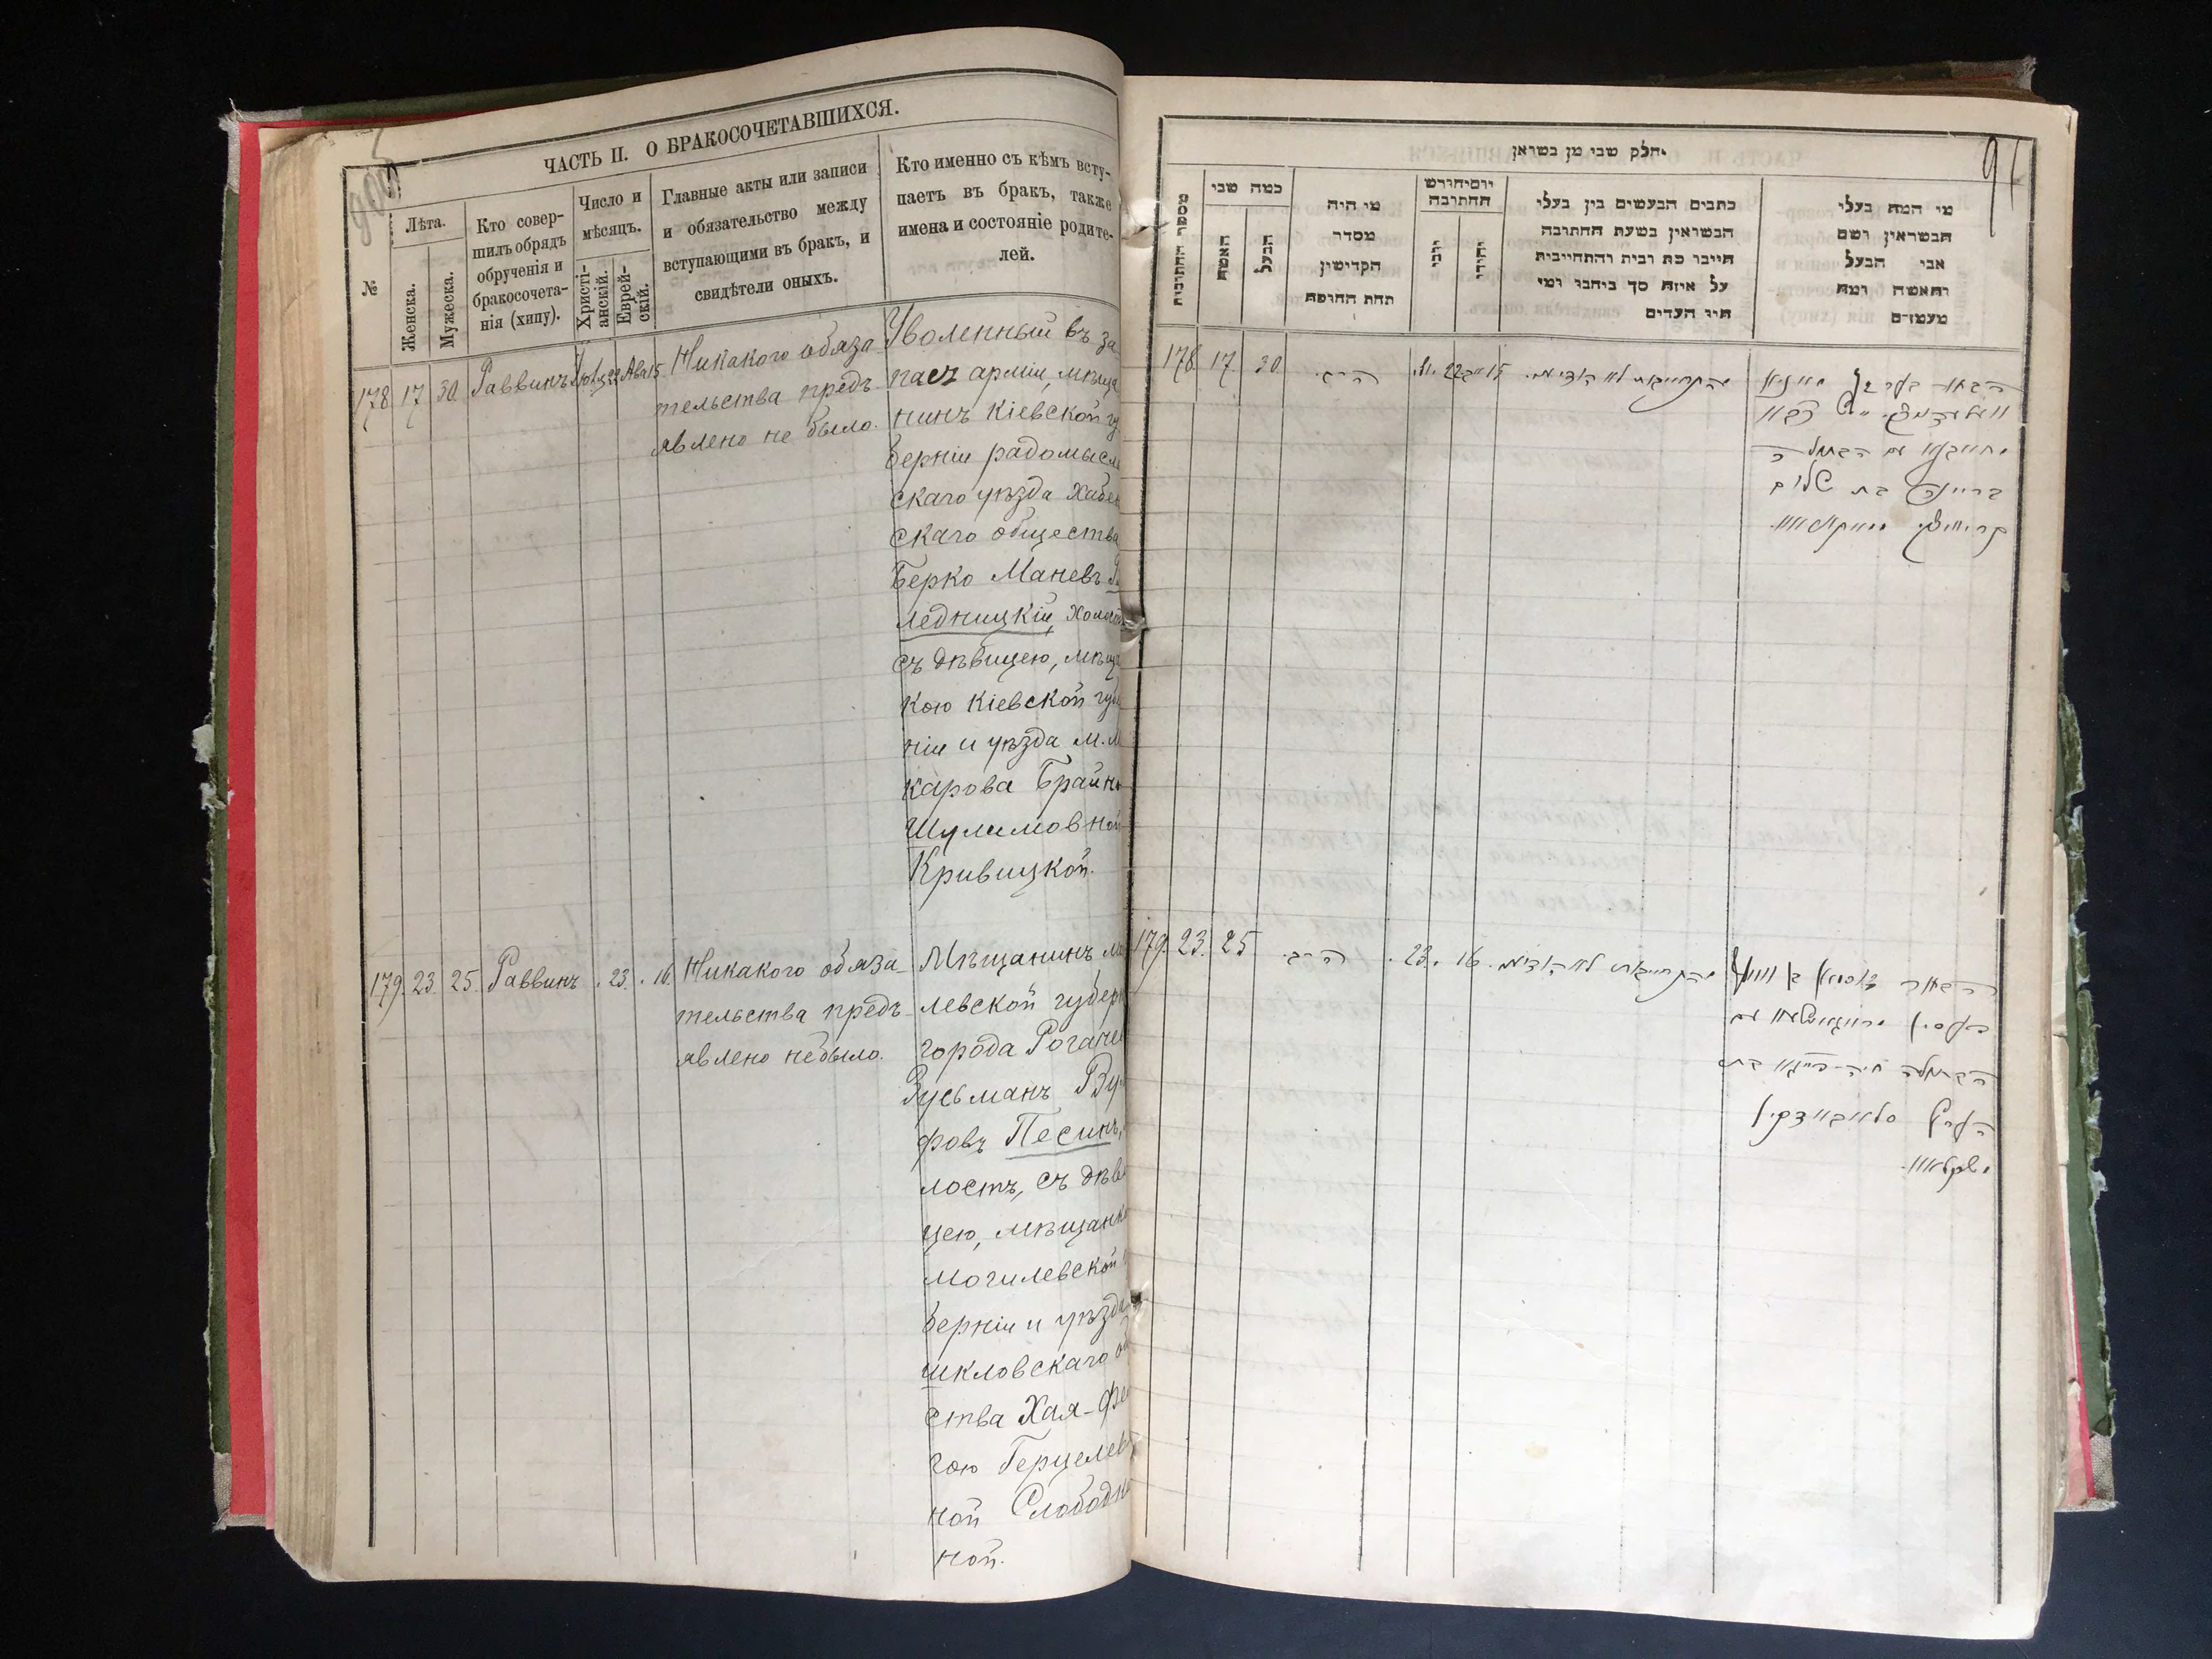 ЧАСТЬ II. О БРАКОСОЧЕТАВШИХСЯ.
№
Лѣта.
Женска.
Мужеска.
Кто совер-
шилъ обрядъ
обрученія и
бракосочета-
нія (хипу).
Число и
мѣсяцъ.
Христі-
анскій.
Еврей-
скій.
Главные акты или записи
и обязательство между
вступающими въ бракъ, и
свидѣтели оныхъ.
Кто именно съ кѣмъ всту-
паетъ въ бракъ, также
имена и состояніе родите-
лей.
178 17 30 Раввинъ 22 Ава 15
Никакого обяза-
тельства предъ-
явлено не было.
Уволенный въ за-
пасъ арміи, мѣща
нинъ Кіевской гу
берніи радомысль
скаго уѣзда Хабен
скаго общества
Берко Маневъ
ледницкій,
съ дѣвицею, мѣща
кою Кіевской губе
ніи и уѣзда м. М
карова Брайно
Шулимовной
Кривицкой.
179. 23. 25. Раввинъ . 23. . 16.
Никакого обяза-
тельства предъ-
явлено не было.
Мѣщанинъ мо
левской губерн
города Рогаче
Зусьманъ Вул
фовъ Песинъ,
лостъ, съ дѣви
цею, мѣщанк
могилевской
берніи и уѣзда
шкловскаго об
ства Хая-Фе
гою Герцелев
ной Слободк
ной.
חלק שני מן נשואין
91
מספר החתונות
כמה שני
האשה
הבעל
מי היה
מסדר
הקדישין
תחת החופה
יום וחודש
החתונה
יוני
יהודי
כתבים הנעשים בין בעלי
הנשואין בשעת החתונה
חייבו כת רבית והתחייבות
על איזה סך ביחבו ומי
היו העדים
מי המה בעלי
הנשואין ושם
אבי הבעל
והאשה ומה
מעמדם
178 17 30 הרב. 22 15 התחייבות לא הודיעו.
הבתולה
בריינה בת שלום
179. 23. 25 הרב. . 23. . 16. התחייבות לא הודיעו.
הבתולה חיה-פייגא בת
הערץ סלאבאדקין